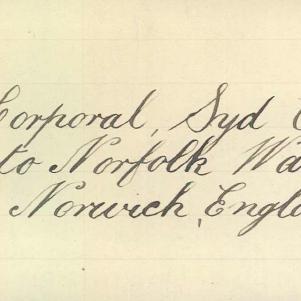 Corporal, Syd
to Norfolk Wa
Norwich, Engla